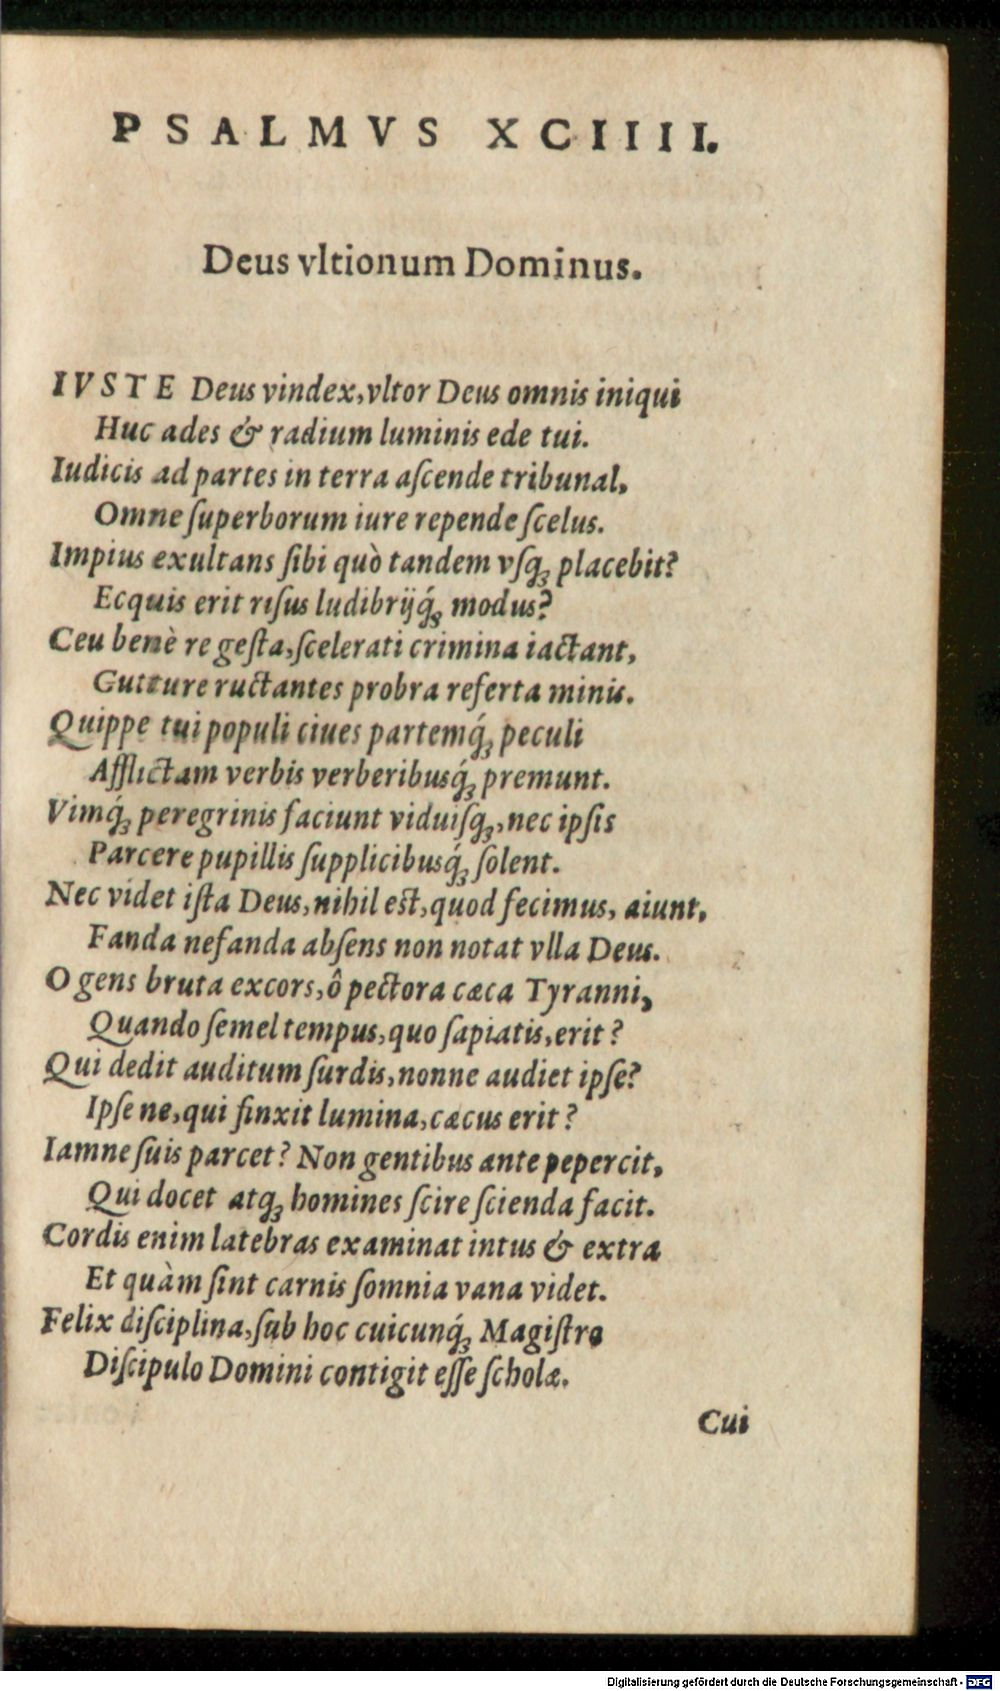 PSALMVS XCIIII.
Deus vltionum Dominus.
IVSTE Deus vindex, vltor Deus omnis iniqui
Huc ades & radium luminis ede tui.
Iudicis ad partes in terra aſcende tribunal,
Omne ſuperborum iure repende ſcelus.
Impius exultans ſibi quò tandem vſq́ꝫ placebit?
Ecquis erit riſus ludibrijq́ꝫ modus?
Ceu benè re geſta, ſcelerati crimina iactant,
Gutture ructantes probra referta minis.
Quippe tui populi ciues partemq́ꝫ peculi
Afflictam verbis verberibusq́ꝫ premunt.
Vimq́ꝫ peregrinis faciunt viduiſqꝫ, nec ipſis
Parcere pupillis ſupplicibusq́ꝫ ſolent.
Nec videt iſta Deus, nihil est, quod fecimus, aiunt,
Fanda nefanda abſens non notat vlla Deus.
O gens bruta excors, ô pectora cæca Tyranni,
Quando ſemel tempus, quo ſapiatis, erit?
Qui dedit auditum ſurdis, nonne audiet ipſe?
Ipſe ne, qui finxit lumina, cæcus erit?
Iamne ſuis parcet? Non gentibus ante pepercit,
Qui docet atqꝫ homines ſcire ſcienda facit.
Cordis enim latebras examinat intus & extra
Et quàm ſint carnis ſomnia vana videt.
Felix diſciplina, ſub hoc cuicunq́ꝫ Magiſtro
Diſcipulo Domini contigit eſſe ſcholæ.
Cui
Digitalisierung gefördert durch die Deutsche Forschungsgemeinschaft - DFG